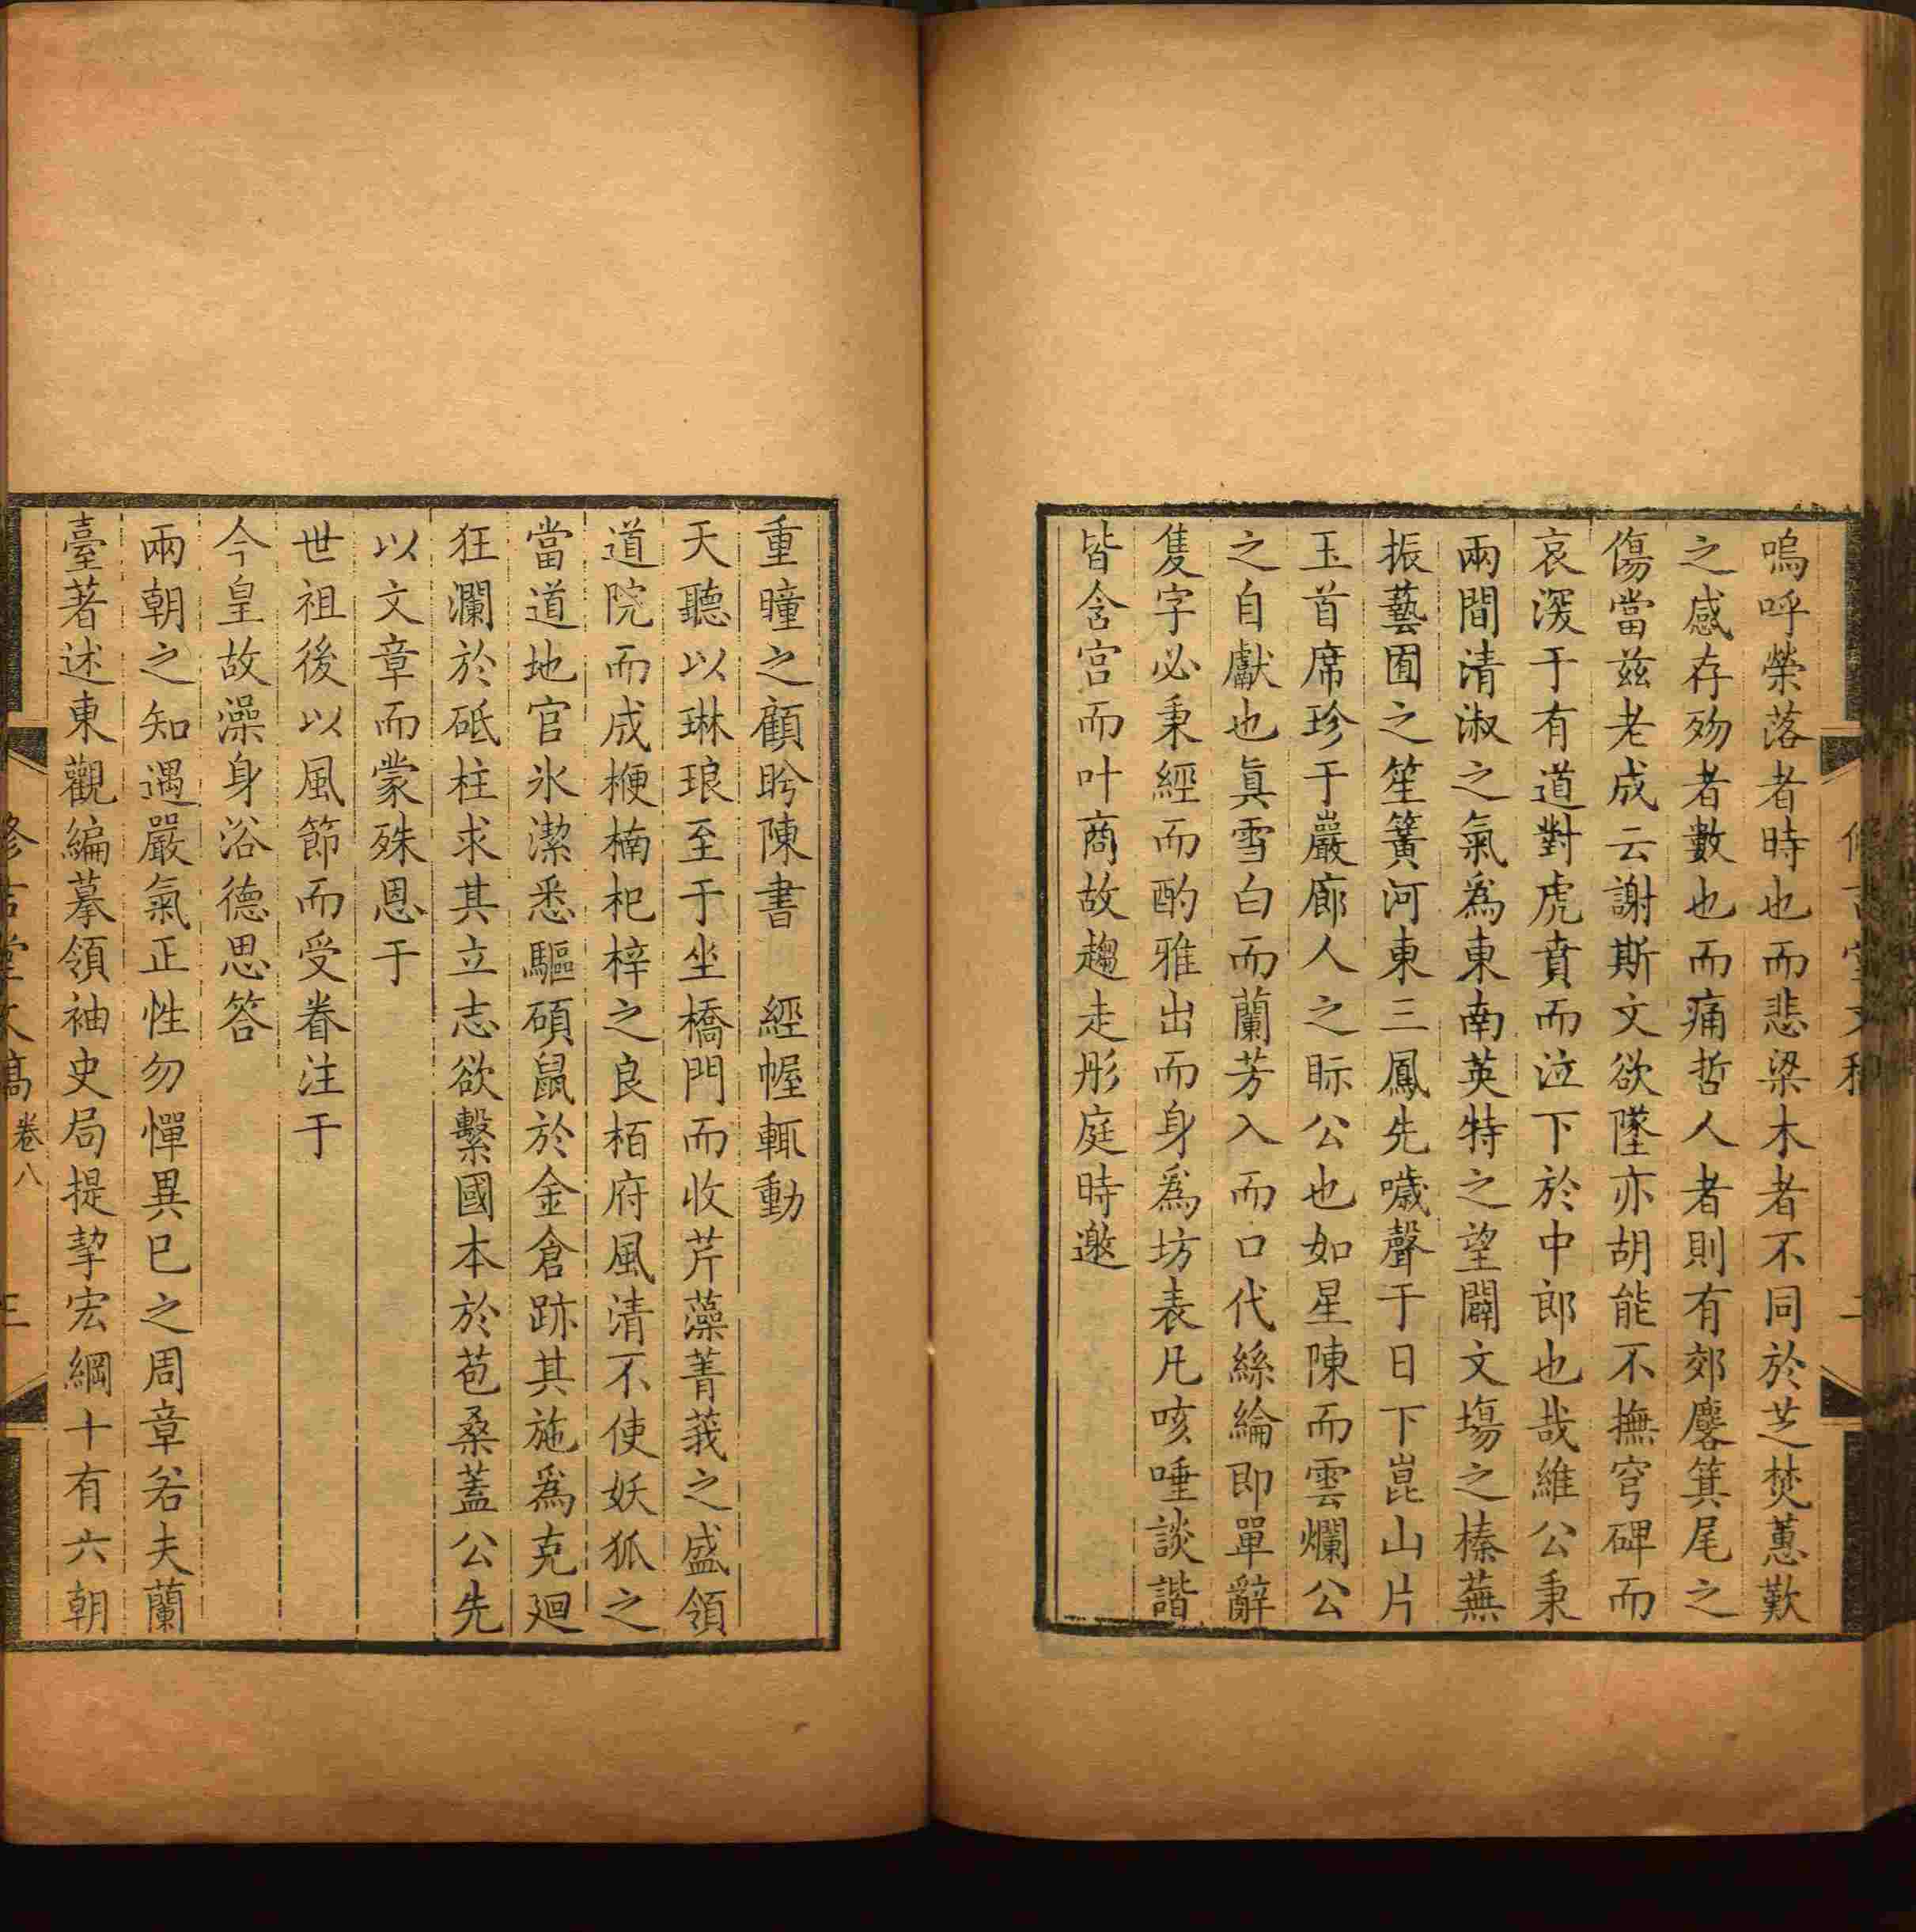 嗚呼榮落者時也而悲梁木者不同於芝焚蕙歎
之感存歿者數也而痛哲人者則有郊麐箕尾之
傷當兹老成云謝斯文欲墜亦胡能不撫穹碑而
哀深于有道對虎賁而泣下於中郎也哉維公秉
兩間清淑之氣爲東南英特之望闢文塲之榛蕪
振藝囿之笙簧河東三鳳先噦聲于日下崑山片
玉首席珍于巖廊人之眎公也如星陳而雲爛公
之自獻也眞雪白而蘭芳入而口代絲綸即單辭
隻字必秉經而酌雅出而身爲坊表凡咳唾談諧
皆含宫而叶商故趨走彤庭時邀
重瞳之顧盻陳書 經幄輒動
天聽以琳琅至于坐橋門而收芹藻菁莪之盛領
道院而成楩楠杞梓之良栢府風清不使妖狐之
當道地官氷潔悉驅碩鼠於金倉跡其施爲克廻
狂瀾於砥柱求其立志欲繫國本於苞桑蓋公先
以文章而蒙殊恩于
世祖後以風節而受眷注于
今皇故澡身浴德思答
兩朝之知遇嚴氣正性勿憚異已之周章若夫蘭
臺著述東觀編摹領袖史局提挈宏綱十有六朝
修吉堂文稿 卷八 三